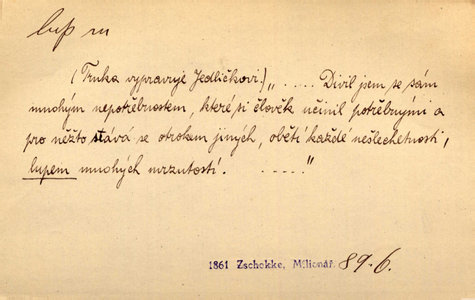 lup m
(Trnka vypravuje Jedličkovi:) „ ..... Divil jsem se sám
mnohým nepotřebnostem, které si člověk učinil potřebnými a
pro něžto stává se otrokem jiných, obětí každé nešlechetnosti,
lupem mnohých mrzutostí. ....."
1861 Zschokke, Milionář. 89-6.